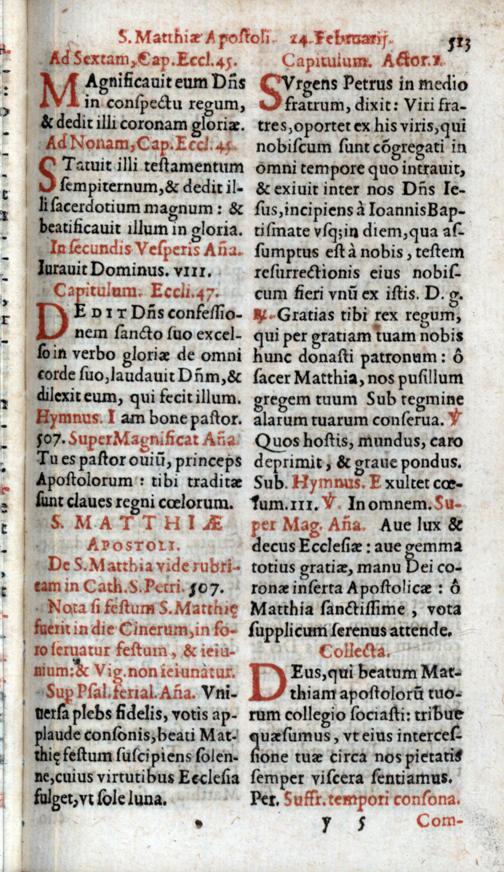 S. Matthiæ Apostoli. 24. Februarij. 513
Ad Sextam, Cap. Eccl. 45.
MAgnificauit eum Dñs
in conspectu regum,
& dedit illi coronam gloriæ.
Ad Nonam, Cap. Eccl. 45.
STatuit illi testamentum
sempiternum, & dedit il-
li sacerdotium magnum: &
beatificauit illum in gloria.
In secundis Vesperis Aña.
Iurauit Dominus. VIII.
Capitulum. Eccli. 47.
DEDIT Dñs confessio-
nem sancto suo excel-
so in verbo gloriæ de omni
corde suo, laudauit Dñm, &
dilexit eum, qui fecit illum.
Hymnus. Iam bone pastor.
507. Super Magnificat Aña.
Tu es pastor ouiũ, princeps
Apostolorum: tibi traditæ
sunt claues regni cœlorum.
S. MATTHIÆ
APOSTOLI.
De S. Matthia vide rubri-
cam in Cath. S. Petri. 507.
Nota si festum S. Matthię
fuerit in die Cinerum, in fo-
ro seruatur festum, & ieiu-
nium: & Vig. non ieiunatur.
Sup Psal. ferial. Aña. Vni-
uersa plebs fidelis, votis ap-
plaude consonis, beati Mat-
thię festum suscipiens solen-
ne, cuius virtutibus Ecclesia
fulget, vt sole luna.
Capitulum. Actor. 1.
SVrgens Petrus in medio
fratrum, dixit: Viri fra-
tres, oportet ex his viris, qui
nobiscum sunt cõgregati in
omni tempore quo intrauit,
& exiuit inter nos Dñs Ie-
sus, incipiens à Ioannis Bap-
tismate vsq; in diem, qua as-
sumptus est à nobis, testem
resurrectionis eius nobis-
cum fieri vnũ ex istis. D. g.
℟. Gratias tibi rex regum,
qui per gratiam tuam nobis
hunc donasti patronum: ô
sacer Matthia, nos pusillum
gregem tuum Sub tegmine
alarum tuarum conserua. ℣
Quos hostis, mundus, caro
deprimit, & graue pondus.
Sub. Hymnus. Exultet cœ-
lum. III. ℣. In omnem. Su-
per Mag. Aña. Aue lux &
decus Ecclesiæ: aue gemma
totius gratiæ, manu Dei co-
ronæ inserta Apostolicæ: ô
Matthia sanctissime, vota
supplicum serenus attende.
Collecta.
DEus, qui beatum Mat-
thiam apostolorũ tuo-
rum collegio sociasti: tribue
quæsumus, vt eius interces-
sione tuæ circa nos pietatis
semper viscera sentiamus.
Per. Suffr. tempori consona.
y 5 Com-